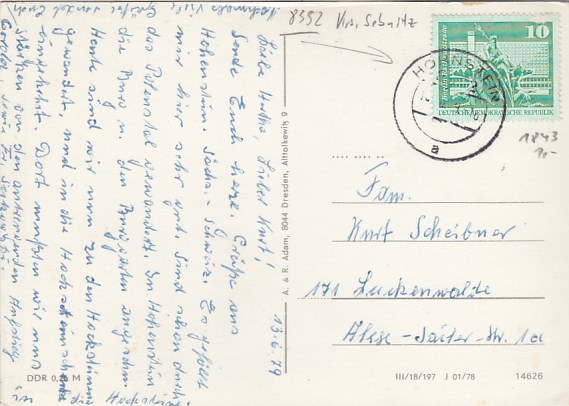 8352 Krs. Sebnitz
10
HOHNSTEIN
a
DEUTSCHE DEMOKRATISCHE REPUBLIK
1843
13.6.79
Liebe Hertha, Lieber Kurt!
Sende Euch herzl. Grüße aus
Hohnstein. Sächs.-Schweiz. Es gefällt
mir hier sehr gut. Sind schon durch
das Polenztal gewandert. In Hohnstein
die Burg u. den Burggarten angesehen.
Heute sind wir nun zu den
gewandert, und in die
eingekehrt. Dort mußten wir uns
stärken von den anstrengenden
Nochmals viele
Grüße sendet Euch
A. & R. Adam, 8044 Dresden, Altlolkewitz 9
Fam.
Kurt Scheibner
171 Luckenwalde
Str. 1a
DDR 0,20 M
III/18/197 J 01/78
14626